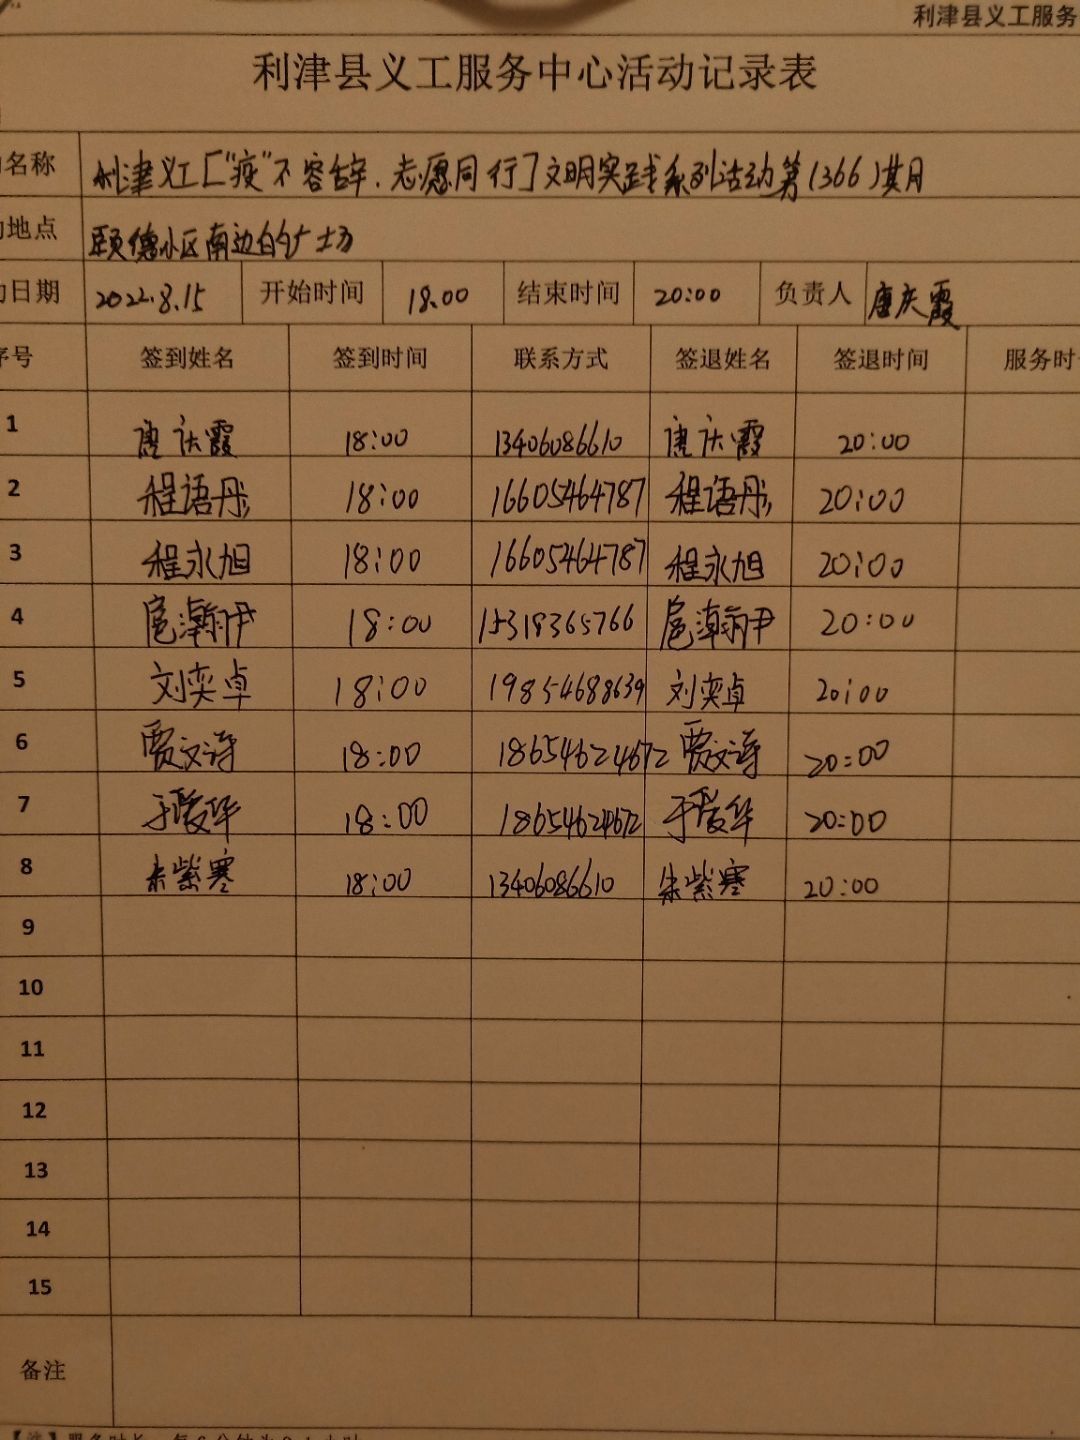 利津县义工服务
利津县义工服务中心活动记录表
名称 利津义工[“疫”不容辞.志愿同行]文明实践系列活动第(366)期
地点 颐德小区南边的广场
日期 2022.8.15 开始时间 18:00 结束时间 20:00 负责人 唐庆霞
序号 签到姓名 签到时间 联系方式 签退姓名 签退时间 服务时
1 唐庆霞 18:00 13406086610 唐庆霞 20:00
2 程语彤 18:00 16605464787 程语彤 20:00
3 程永旭 18:00 16605464787 程永旭 20:00
4 扈瀚尹 18:00 15318365766 扈瀚尹 20:00
5 刘奕卓 18:00 19854688639 刘奕卓 20:00
6 贾文涛 18:00 18654624672 贾文涛 20:00
7 于爱华 18:00 18654624672 于爱华 20:00
8 朱紫骞 18:00 13406086610 朱紫骞 20:00
9
10
11
12
13
14
15
备注